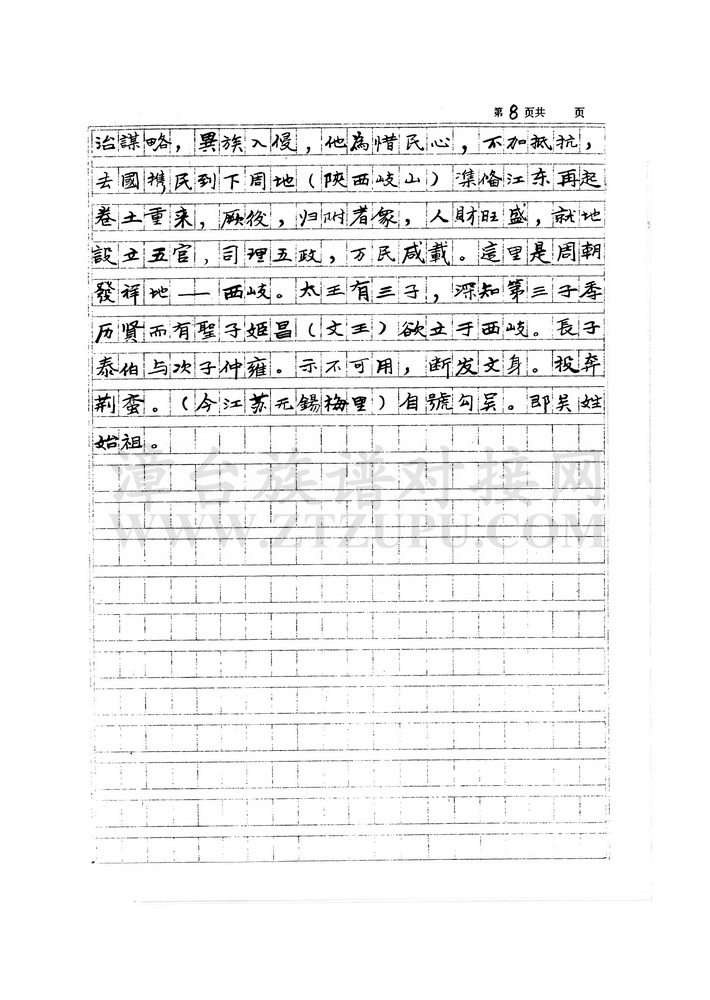 第8页共 页
治謀略，異族入侵，他為惜民心，不加抵抗，
去國携民到下周地（陝西岐山）準偹江东再起
卷土重来，厥後，归附者象，人財旺盛，就地
設立五官，司理五政，万民咸載。這里是周朝
發祥地——西岐。太王有三子，深知第三子季
历贤而有聖子姬昌（文王）欲立于西岐。長子
泰伯与次子仲雍。示不可用，断发文身。投奔
荆蛮。（今江苏无錫梅里）自號勾吴。即吴姓
始祖。
漳台族谱对接网
WWW.ZTZUPU.COM